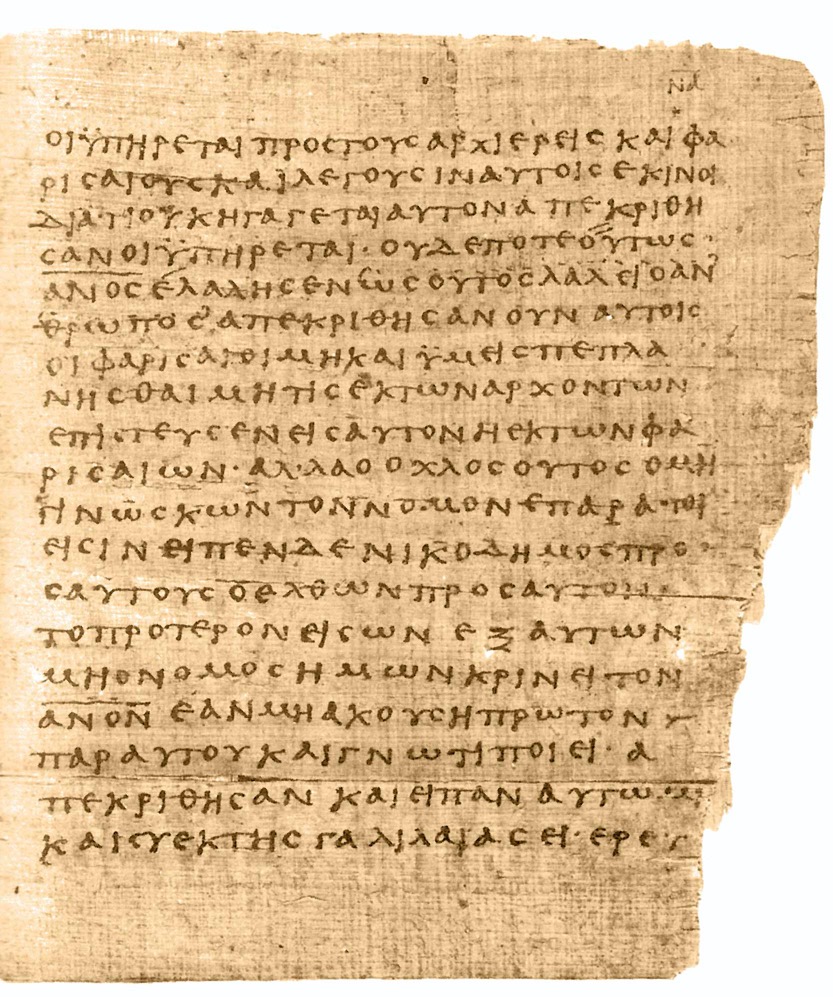 ΝΔ
ΟΙΫΠΗΡΕΤΑΙΠΡΟΣΤΟΥΣΑΡΧΙΕΡΕΙΣΚΑΙΦΑ
ΡΙΣΑΙΟΥΣΚΑΙΛΕΓΟΥΣΙΝΑΥΤΟΙΣΕΚΙΝΟΙ
ΔΙΑΤΙΟΥΚΗΓΑΓΕΤΑΙΑΥΤΟΝΑΠΕΚΡΙΘΗ
ΣΑΝΟΙΫΠΗΡΕΤΑΙ·ΟΥΔΕΠΟΤΕΟΥΤΩΣ·
ΑΝΟΣΕΛΑΛΗΣΕΝΩΣΟΥΤΟΣΛΑΛΕΙΟΑΝ
ΘΡΩΠΟΣΑΠΕΚΡΙΘΗΣΑΝΟΥΝΑΥΤΟΙΣ
ΟΙΦΑΡΙΣΑΙΟΙΜΗΚΑΙΫΜΕΙΣΠΕΠΛΑ
ΝΗΣΘΑΙΜΗΤΙΣΕΚΤΩΝΑΡΧΟΝΤΩΝ
ΕΠΙΣΤΕΥΣΕΝΕΙΣΑΥΤΟΝΗΕΚΤΩΝΦΑ
ΡΙΣΑΙΩΝ·ΑΛ·ΛΑΟΟΧΛΟΣΟΥΤΟΣΟΜΗ
ΓΙΝΩΣΚΩΝΤΟΝΝΟΜΟΝΕΠΑΡΑΤΟΙ
ΕΙΣΙΝΕΙΠΕΝΔΕΝΙΚΟΔΗΜΟΣΠΡΟ
ΣΑΥΤΟΥΣΟΕΛΘΩΝΠΡΟΣΑΥΤΟΝ
ΤΟΠΡΟΤΕΡΟΝΕΙΣΩΝΕΞΑΥΤΩΝ
ΜΗΟΝΟΜΟΣΗΜΩΝΚΡΙΝΕΙΤΟΝ
ΑΝΟΝΕΑΝΜΗΑΚΟΥΣΗΠΡΩΤΟΝ
ΠΑΡΑΥΤΟΥΚΑΙΓΝΩΤΙΠΟΙΕΙ·Α
ΠΕΚΡΙΘΗΣΑΝΚΑΙΕΙΠΑΝΑΥΤΩ·
ΚΑΙΣΥΕΚΤΗΣΓΑΛΙΛΑΙΑΣΕΙ·ΕΡΕ